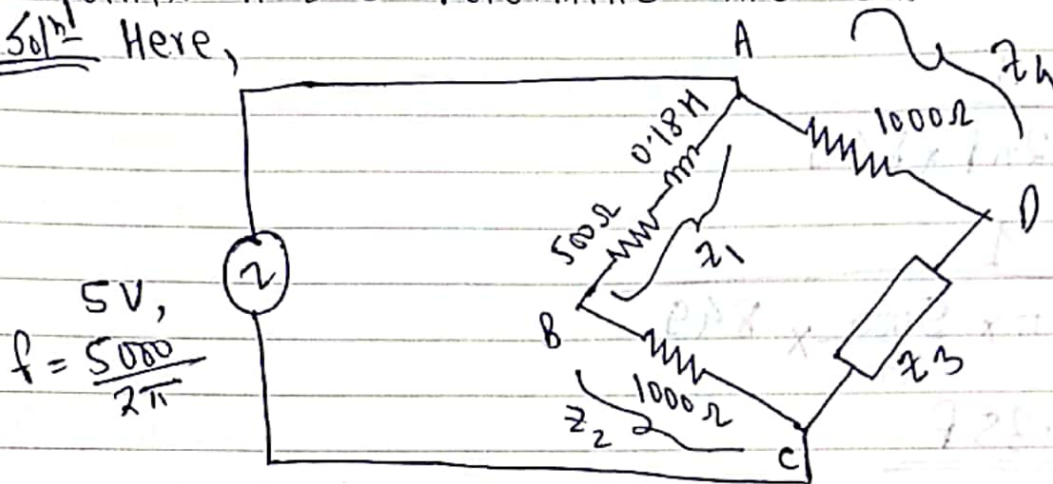 Solnⁿ Here,
A
Z4
1000Ω
0.18H
500Ω
Z1
D
5V,
f = 5000/2π
B
1000Ω
Z2
Z3
C